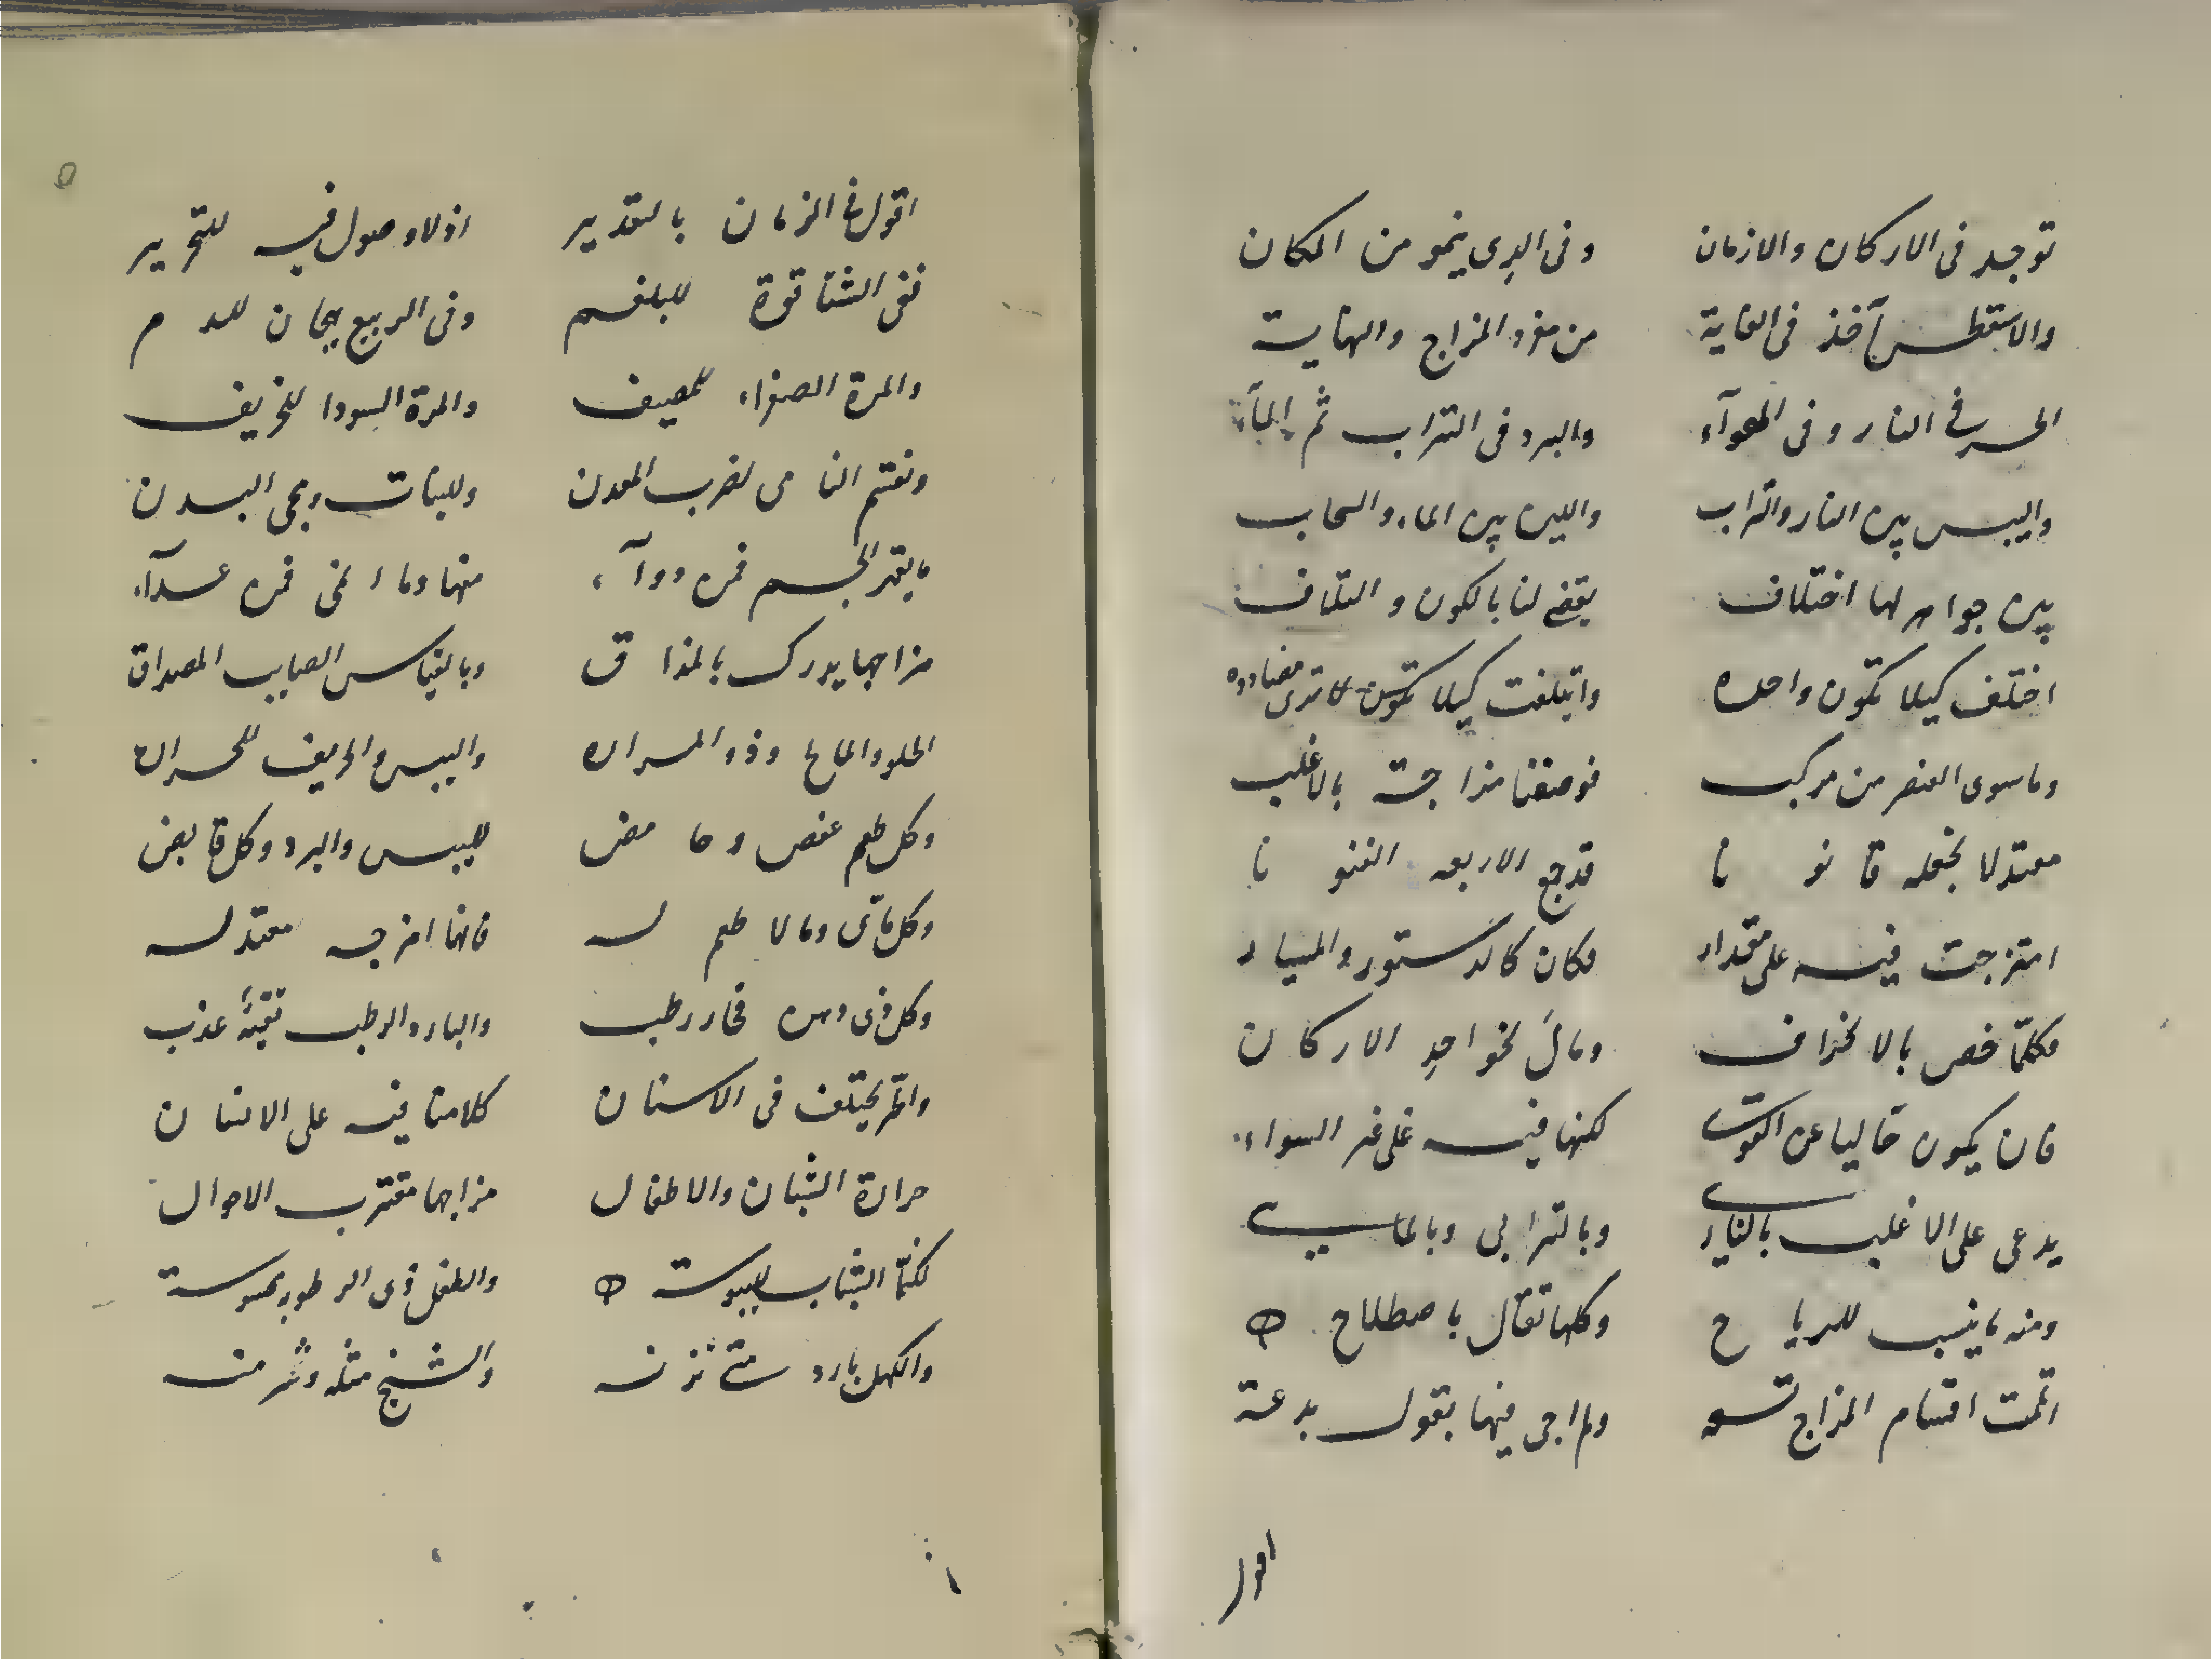 توجد في الاركان والازمان وفي الذي ينمو من المكان
والاستقطس آخذ في الغاية من مفرد المزاج والنهاية
الحر في النار وفي الهوآء والبرد في التراب ثم المآء
واليبس بين النار والتراب واللين بين الماء والسحاب
بين جواهر لها اختلاف يقضي لنا بالكون والتلاف
اختلف كيلا تكون واحده وايتلفت كيلا تكون لا ترى مضادده
وما سوى العنصر من مركب فوصفنا مزاجه بالاغلب
معتدلا نجعله قانونا قد جمع الاربعه الفنونا
امتزجت فيه على مقدار فكان كالدستور والمعيار
فكلما خص بالانحراف ومال نحو احد الاركان
فان يكون خاليا عن القوى لكنها فيه على غير السواء
يدعى على الاغلب بالناري وبالترابي وبالمايي
ومنه ما ينسب للرياح وكلها تقال باصطلاح
اتممت اقسام المزاج تسعه ولم اجي فيها بقول بدعة
اقول
اقول في الزمان بالتقدير اذ لا وصول فيه للتحرير
ففي الشتا قوة للبلغم وفي الربيع هيجان للدم
والمرة الصفراء للمصيف والمرة السودا للخريف
ونقتسم النامي لضرب المعدن وللنبات وبحي البدن
ما يغير الجسم فمن دوآء منها وما انمى فمن غدآء
مزاجها يدرك بالمذاق وبالقياس الصايب المصداق
الحلو والمالح وذو المراره واليبس والحريف للحراره
وكل طعم عفص وحامض لليبس والبرد وكل قابض
وكل مائي وما لا طعم له فانها امزجه معتدله
وكل ذي دهن فحار رطب والبارد الرطب تقيئه عذب
واقر يختلف في الاسنان كلامنا فيه على الانسان
حرارة الشبان والاطفال مزاجها مقترب الاحوال
لكنما الشباب لليبوسة والطفل ذي الرطوبه محسوسة
والكهل بارد متى تزنه والشيخ مثله وشر منه